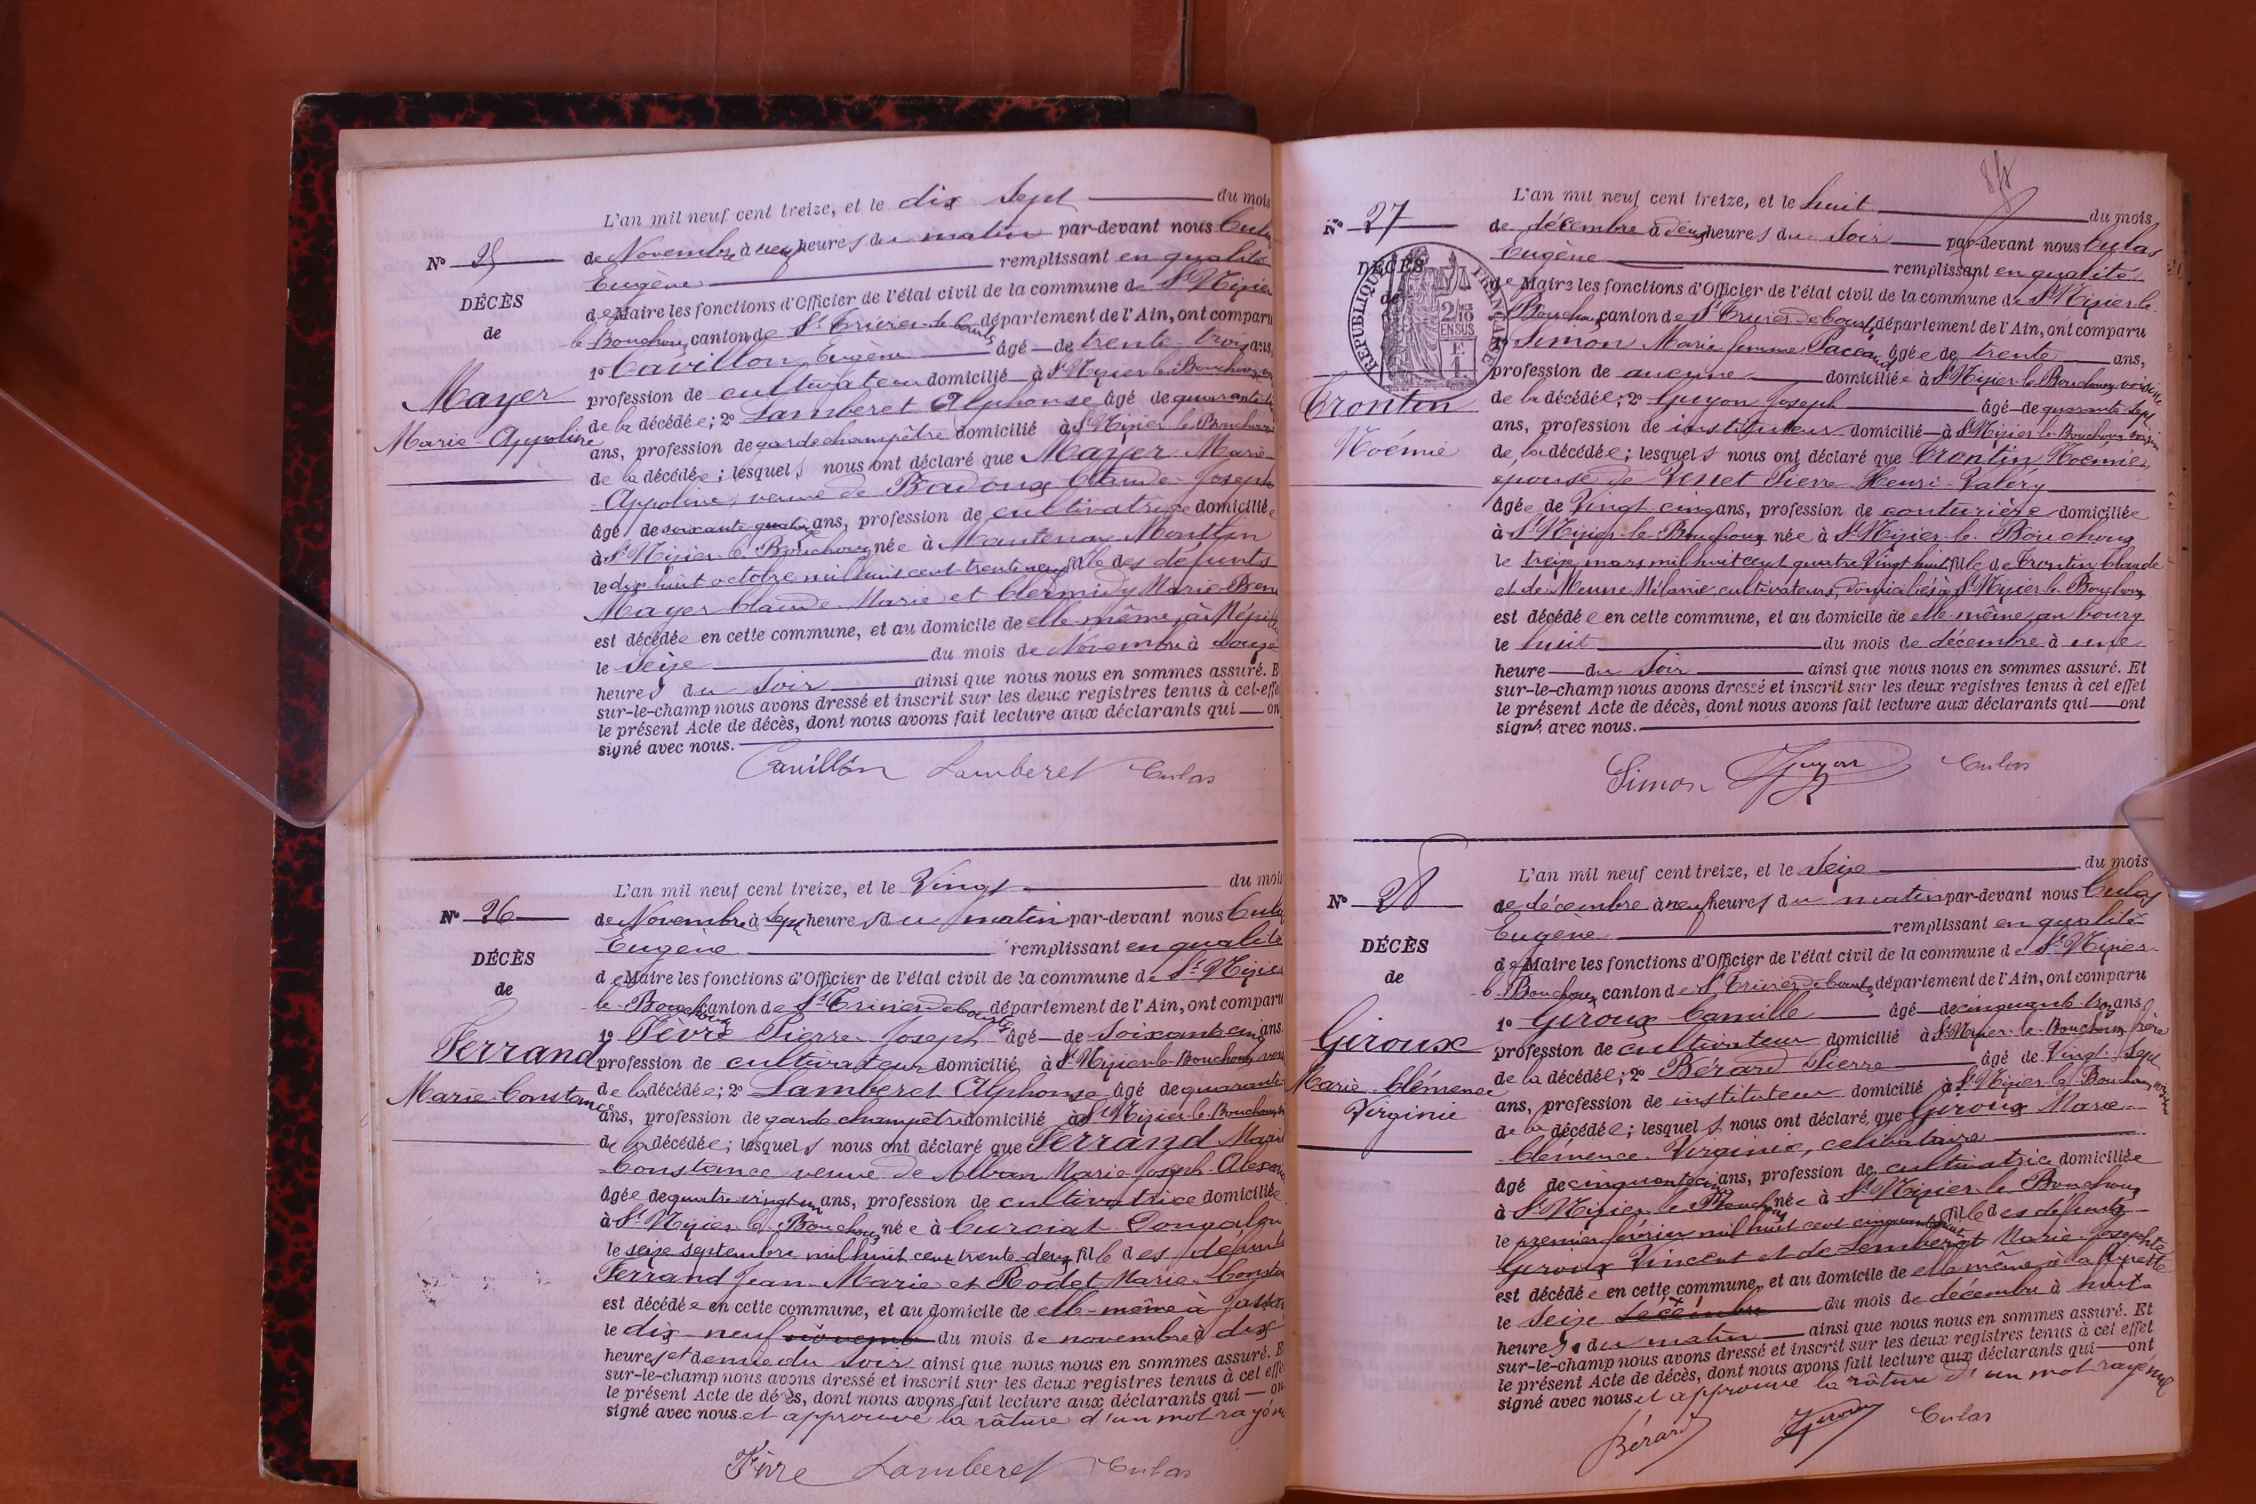 L'an mil neuf cent treize, et le dix sept du mois
N° 25
de Novembre à neuf heures du matin par-devant nous Culas
Eugène remplissant en qualité
DÉCÈS
de Maire les fonctions d'Officier de l'état civil de la commune de St Nizier
de
le Bouchoux canton de St Trivier de Courtes département de l'Ain, ont comparu
1° Cavillon Eugène âgé de trente trois ans,
Mayer
profession de cultivateur domicilié à St Nizier le Bouchoux
de la décédée; 2° Lamberet Alphonse âgé de quarante
Marie-Appoline
ans, profession de garde champêtre domicilié à St Nizier le Bouchoux
de la décédée; lesquels nous ont déclaré que Mayer Marie
Appoline, veuve de Badoux Claude-Joseph
âgé de soixante quatorze ans, profession de cultivatrice domiciliée
à St Nizier-le-Bouchoux née à Mantenay Montlin
le dix huit octobre mil huit cent trente neuf fille des défunts
Mayer Claude Marie et Clermidy Marie
est décédée en cette commune, et au domicile de elle-même, à
le seize du mois de Novembre à douze
heures du soir ainsi que nous nous en sommes assuré. E
sur-le-champ nous avons dressé et inscrit sur les deux registres tenus à cet effe
le présent Acte de décès, dont nous avons fait lecture aux déclarants qui on
signé avec nous.
Cavillon Lamberet Culas
L'an mil neuf cent treize, et le Vingt du mois
N° 26
de Novembre à sept heures du matin par-devant nous Culas
Eugène remplissant en qualité
DÉCÈS
de Maire les fonctions d'Officier de l'état civil de la commune de St Nizier
de
le Bouchoux canton de St Trivier de Courtes département de l'Ain, ont comparu
1° Fèvre Pierre Joseph âgé de soixante cinq ans
Ferrand
profession de cultivateur domicilié à St Nizier le Bouchoux
Marie-Constance
de la décédée; 2° Lamberet Alphonse âgé de quarante
ans, profession de garde champêtre domicilié à St Nizier le Bouchoux
de la décédée; lesquels nous ont déclaré que Ferrand Marie
Constance veuve de Alban Marie Joseph
âgée de quatre vingt un ans, profession de cultivatrice domiciliée
à St Nizier le Bouchoux née à Curciat Dongalon
le seize septembre mil huit cent trente-deux fille des défunts
Ferrand Jean Marie et Rodet Marie
est décédée en cette commune, et au domicile de elle-même à
le dix-neuf novembre du mois de novembre à dix
heures et demie du soir ainsi que nous nous en sommes assuré. E
sur-le-champ nous avons dressé et inscrit sur les deux registres tenus à cet effe
le présent Acte de décès, dont nous avons fait lecture aux déclarants qui on
signé avec nous et approuvé la râture d'un mot rayé
Fèvre Lamberet Culas
L'an mil neuf cent treize, et le huit du mois
N° 27
de décembre à deux heures du soir par-devant nous Culas
Eugène remplissant en qualité
DÉCÈS
de Maire les fonctions d'Officier de l'état civil de la commune de St Nizier le
de
RÉPUBLIQUE FRANÇAISE
2/10 EN SUS
Bouchoux canton de St Trivier de Courtes département de l'Ain, ont comparu
1° Simon Marie femme Pacéaud âgée de trente ans,
profession de aucune domiciliée à St Nizier le Bouchoux voisine
Trontin
de la décédée; 2° Guyon Joseph âgé de quarante sept
ans, profession de instituteur domicilié à St Nizier le Bouchoux voisin
Noémie
de la décédée; lesquels nous ont déclaré que Trontin Noémie,
épouse de Venet Pierre Henri Valéry
âgée de Vingt cinq ans, profession de couturière domiciliée
à St Nizier-le-Bouchoux née à St Nizier-le-Bouchoux
le treize mars mil huit cent quatre Vingt huit fille de Trontin Claude
et de Meune Mélanie cultivateurs, domiciliés à St Nizier le Bouchoux
est décédée en cette commune, et au domicile de elle-même, au bourg
le huit du mois de décembre à une
heure du soir ainsi que nous nous en sommes assuré. Et
sur-le-champ nous avons dressé et inscrit sur les deux registres tenus à cet effet
le présent Acte de décès, dont nous avons fait lecture aux déclarants qui ont
signé avec nous.
Simon Guyon Culas
L'an mil neuf cent treize, et le seize du mois
N° 28
de décembre à neuf heures du matin par-devant nous Culas
Eugène remplissant en qualité
DÉCÈS
de Maire les fonctions d'Officier de l'état civil de la commune de St Nizier-
de
le Bouchoux canton de St Trivier de Courtes département de l'Ain, ont comparu
1° Giroux Camille âgé de cinquante trois ans
Giroux
profession de cultivateur domicilié à St Nizier-le-Bouchoux frère
de la décédée; 2° Bérard Pierre âgé de Vingt-sept
Marie-Clémence
ans, profession de instituteur domicilié à St Nizier-le-Bouchoux voisin
Virginie
de la décédée; lesquels nous ont déclaré que Giroux Marie-
Clémence-Virginie, célibataire
âgé de cinquante cinq ans, profession de cultivatrice domiciliée
à St Nizier le Bouchoux née à St Nizier-le-Bouchoux
le premier février mil huit cent cinquante huit fille des défunts
Giroux Vincent et de Lamberet Marie-Josephte
est décédée en cette commune, et au domicile de elle même à la
le seize décembre du mois de décembre à huit
heures du matin ainsi que nous nous en sommes assuré. Et
sur-le-champ nous avons dressé et inscrit sur les deux registres tenus à cet effet
le présent Acte de décès, dont nous avons fait lecture aux déclarants qui ont
signé avec nous et approuvé la râture d'un mot rayé nul
Bérard Giroux Culas